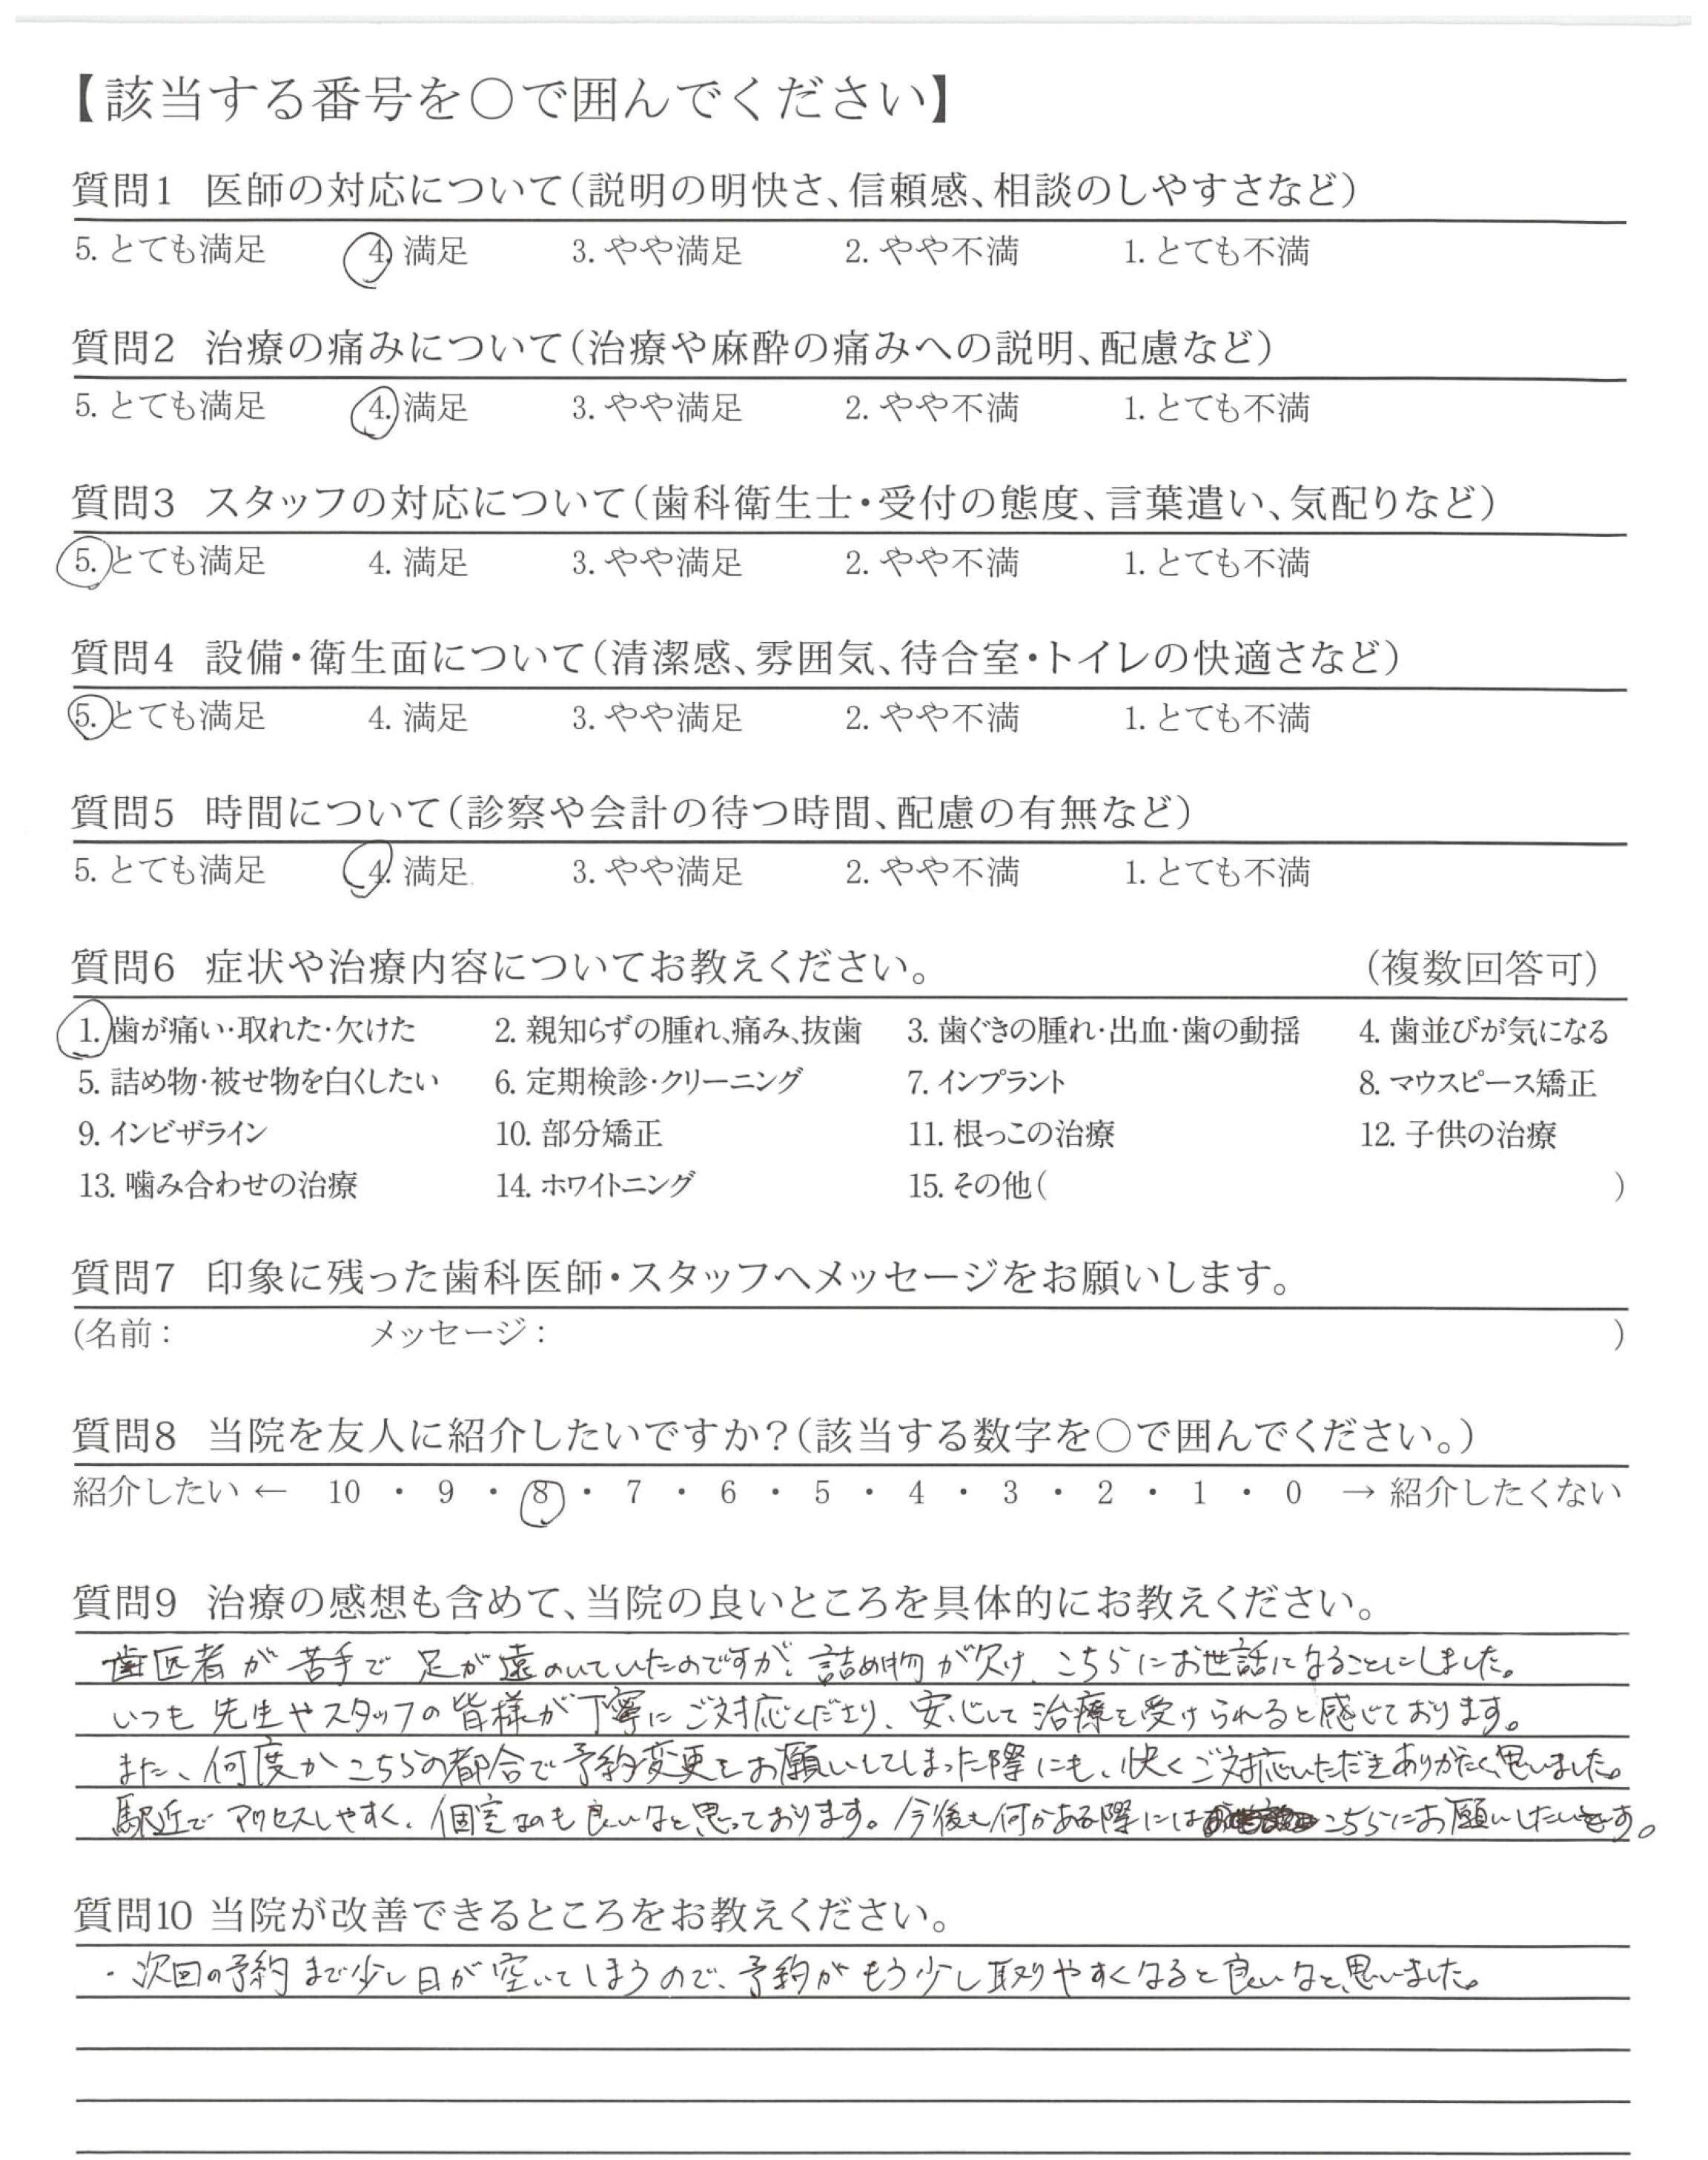 【該当する番号を○で囲んでください】
質問1 医師の対応について(説明の明快さ、信頼感、相談のしやすさなど)
5. とても満足 4. 満足 3. やや満足 2. やや不満 1. とても不満
質問2 治療の痛みについて(治療や麻酔の痛みへの説明、配慮など)
5. とても満足 4. 満足 3. やや満足 2. やや不満 1. とても不満
質問3 スタッフの対応について(歯科衛生士・受付の態度、言葉遣い、気配りなど)
5. とても満足 4. 満足 3. やや満足 2. やや不満 1. とても不満
質問4 設備・衛生面について(清潔感、雰囲気、待合室・トイレの快適さなど)
5. とても満足 4. 満足 3. やや満足 2. やや不満 1. とても不満
質問5 時間について(診察や会計の待つ時間、配慮の有無など)
5. とても満足 4. 満足 3. やや満足 2. やや不満 1. とても不満
質問6 症状や治療内容についてお教えください。 (複数回答可)
1. 歯が痛い・取れた・欠けた 2. 親知らずの腫れ、痛み、抜歯 3. 歯ぐきの腫れ・出血・歯の動揺 4. 歯並びが気になる
5. 詰め物・被せ物を白くしたい 6. 定期検診・クリーニング 7. インプラント 8. マウスピース矯正
9. インビザライン 10. 部分矯正 11. 根っこの治療 12. 子供の治療
13. 噛み合わせの治療 14. ホワイトニング 15. その他( )
質問7 印象に残った歯科医師・スタッフへメッセージをお願いします。
(名前: メッセージ: )
質問8 当院を友人に紹介したいですか?(該当する数字を○で囲んでください。)
紹介したい ← 10 ・ 9 ・ 8 ・ 7 ・ 6 ・ 5 ・ 4 ・ 3 ・ 2 ・ 1 ・ 0 → 紹介したくない
質問9 治療の感想も含めて、当院の良いところを具体的にお教えください。
歯医者が苦手で足が遠のいていたのですが、詰め物が欠け、こちらにお世話になることにしました。
いつも先生やスタッフの皆様が丁寧にご対応くださり、安心して治療を受けられると感じております。
また、何度かこちらの都合で予約変更をお願いしてしまった際にも、快くご対応いただきありがたく思いました。
駅近でアクセスしやすく、個室なのも良いなと思っております。今後も何かある際にはこちらにお願いしたいです。
質問10 当院が改善できるところをお教えください。
・次回の予約まで少し日が空いてしまうので、予約がもう少し取りやすくなると良いなと思いました。